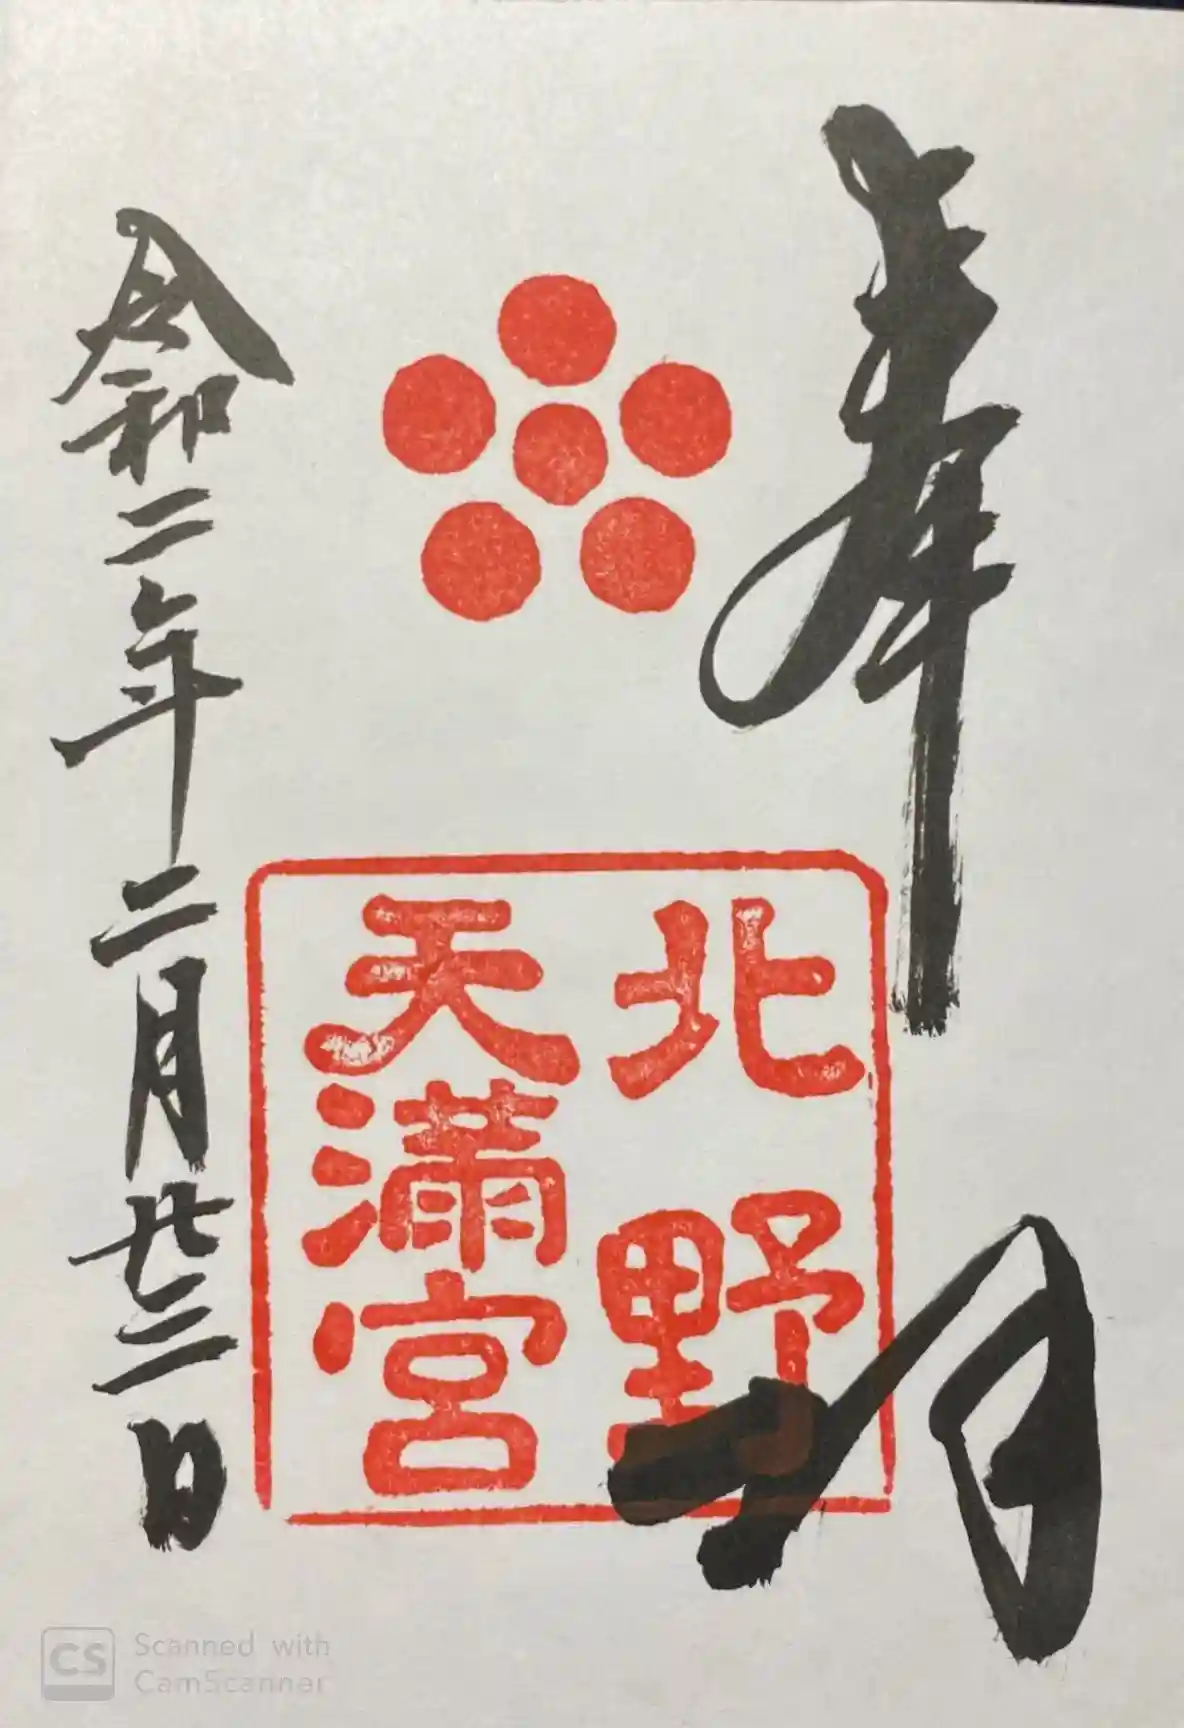 奉拝
北野
天満宮
令和二年二月廿三日
Scanned with
CamScanner